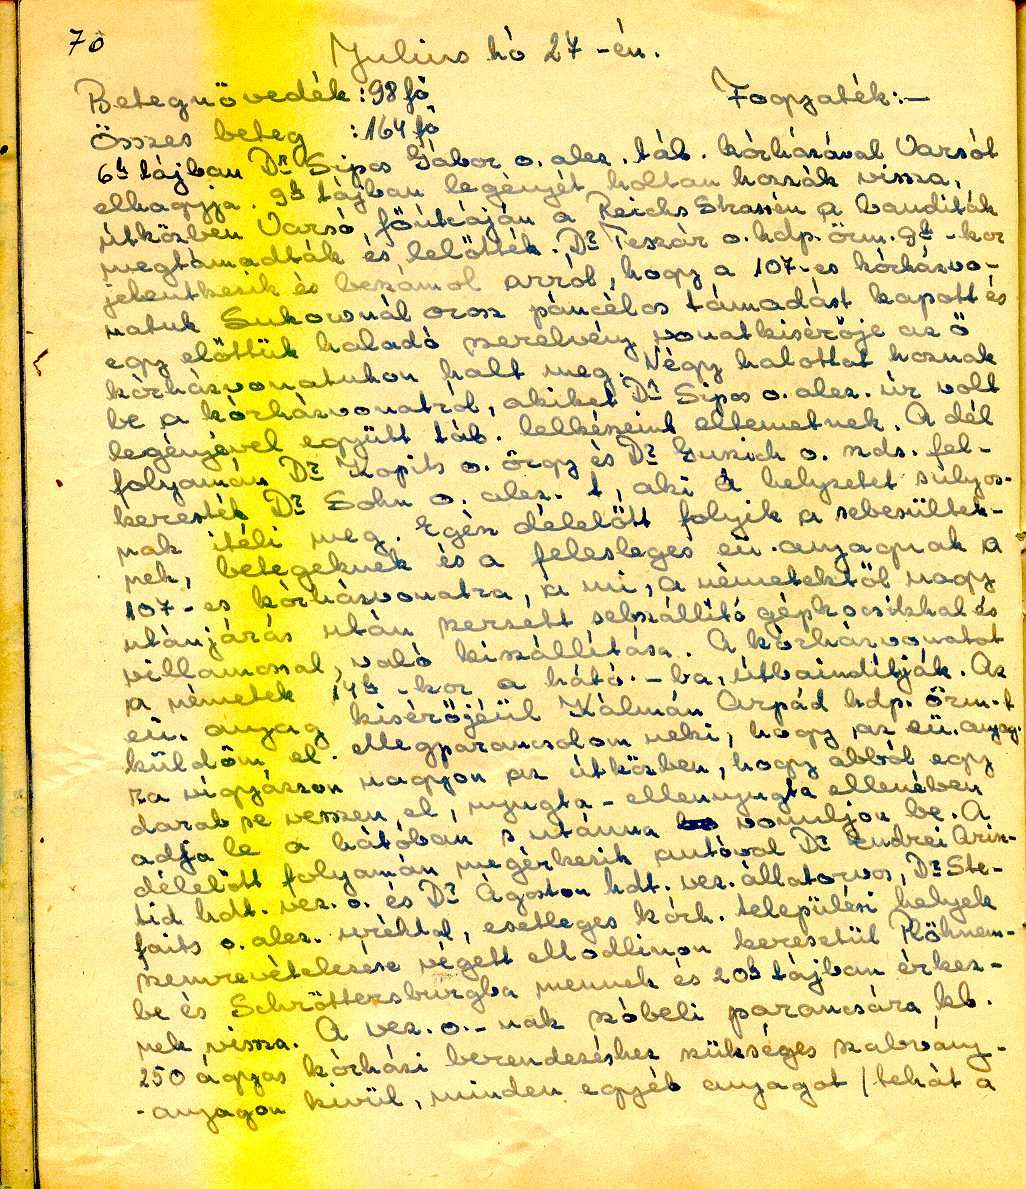 70
Julius hó 27-én.
Betegnövedék : 98 fő Fogyaték:-
Összes beteg : 164 fő
6h tájban Dr Sipos Gábor o. alez. táb. kórházával Varsót
elhagyja. 9h tájban legényét holtan hozzák vissza,
útközben Varsó főútcáján a Reichs Strassén a banditák
megtámadták és lelőtték. Dr Teszár o. hdp. őrm. 9h-kor
jelentkezik és beszámol arról, hogy a 107-es kórházvo-
natuk Sukownál orosz páncélos támadást kapott és
egy előttük haladó szerelvény vonatkisérője az ő
kórházvonatukon halt meg. Négy halottat hoznak
be a kórházvonatról, akiket Dr Sipos o. alez. úr volt
legényével együtt táb. lelkészeink eltemetnek. A dél
folyamán Dr Kopits o. őrgy és Dr o. zds. fel-
keresték Dr Sohn o. alez. t, aki a helyzetet súlyos-
nak itéli meg. Egész délelőtt folyik a sebesültek-
nek, betegeknek és a felesleges eü. anyagnak a
107-es kórházvonatra, a mi, a németektől nagy
utánjárás után szerzett sebszállító gépkocsikkal és
villamossal, való kiszállítása. A kórházvonatot
a németek 14h-kor a hátó.-ba, útbaindítják. Az
eü. anyag kisérőjéül Kálmán Árpád hdp. őrm.t
küldöm el. Megparancsolom neki, hogy az eü. anyag-
ra vigyázzon nagyon az útközben, hogy abból egy
darab se vesszen el, nyugta-ellennyugta ellenében
adja le a hátóban s utánna vonuljon be. A
délelőtt folyamán megérkezik autóval Dr Endrei Arisz-
tid hdt. vez. o. és Dr Ágoston hdt. vez. állatorvos, Dr Ste-
faits o. alez. urékkal, esetleges kórh. települési helyek
szemrevételezése végett Modlinon keresztül Plöhnem-
be és Schröttersburgba mennek és 20h tájban érkez-
nek vissza. A vez. o.-nak szóbeli parancsára kb.
250 ágyas kórházi berendezéshez szükséges szabvány-
-anyagon kívül, minden egyéb anyagot /tehát a